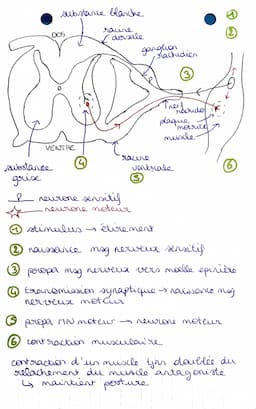 substance blanche
①
DOS
racine
dorsale
②
ganglion
rachidien
③
nerf
rachidien
plaque
motrice
muscle
VENTRE
④
racine
ventrale
⑤
substance
grise
⑥
neurone sensitif
neurone moteur
① stimulus → étirement
② naissance msg nerveux sensitif
③ propag msg nerveux vers moelle épinière
④ transmission synaptique → naissance msg
nerveux moteur
⑤ propag MN moteur → neurone moteur
⑥ contraction musculaire
contraction d'un muscle tjrs doublée du
relâchement du muscle antagoniste
↳ maintient posture